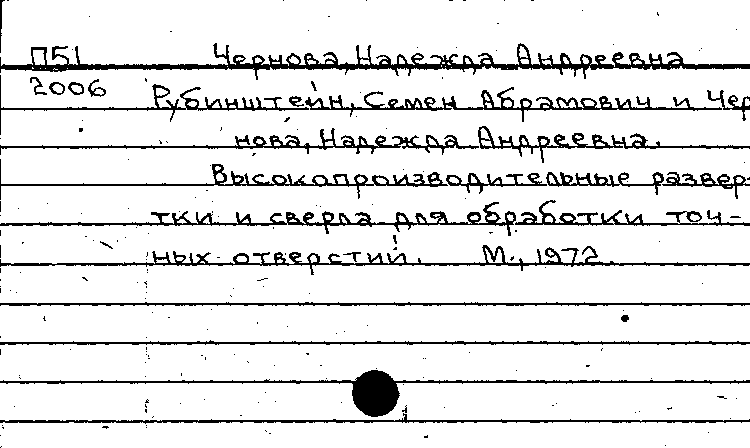 П51 Чернова, Надежда Андреевна
2006 Рубинштейн, Семен Абрамович и Чер
нова, Надежда Андреевна.
Высокопроизводительные развер-
тки и сверла для обработки точ-
ных отверстий. М., 1972.